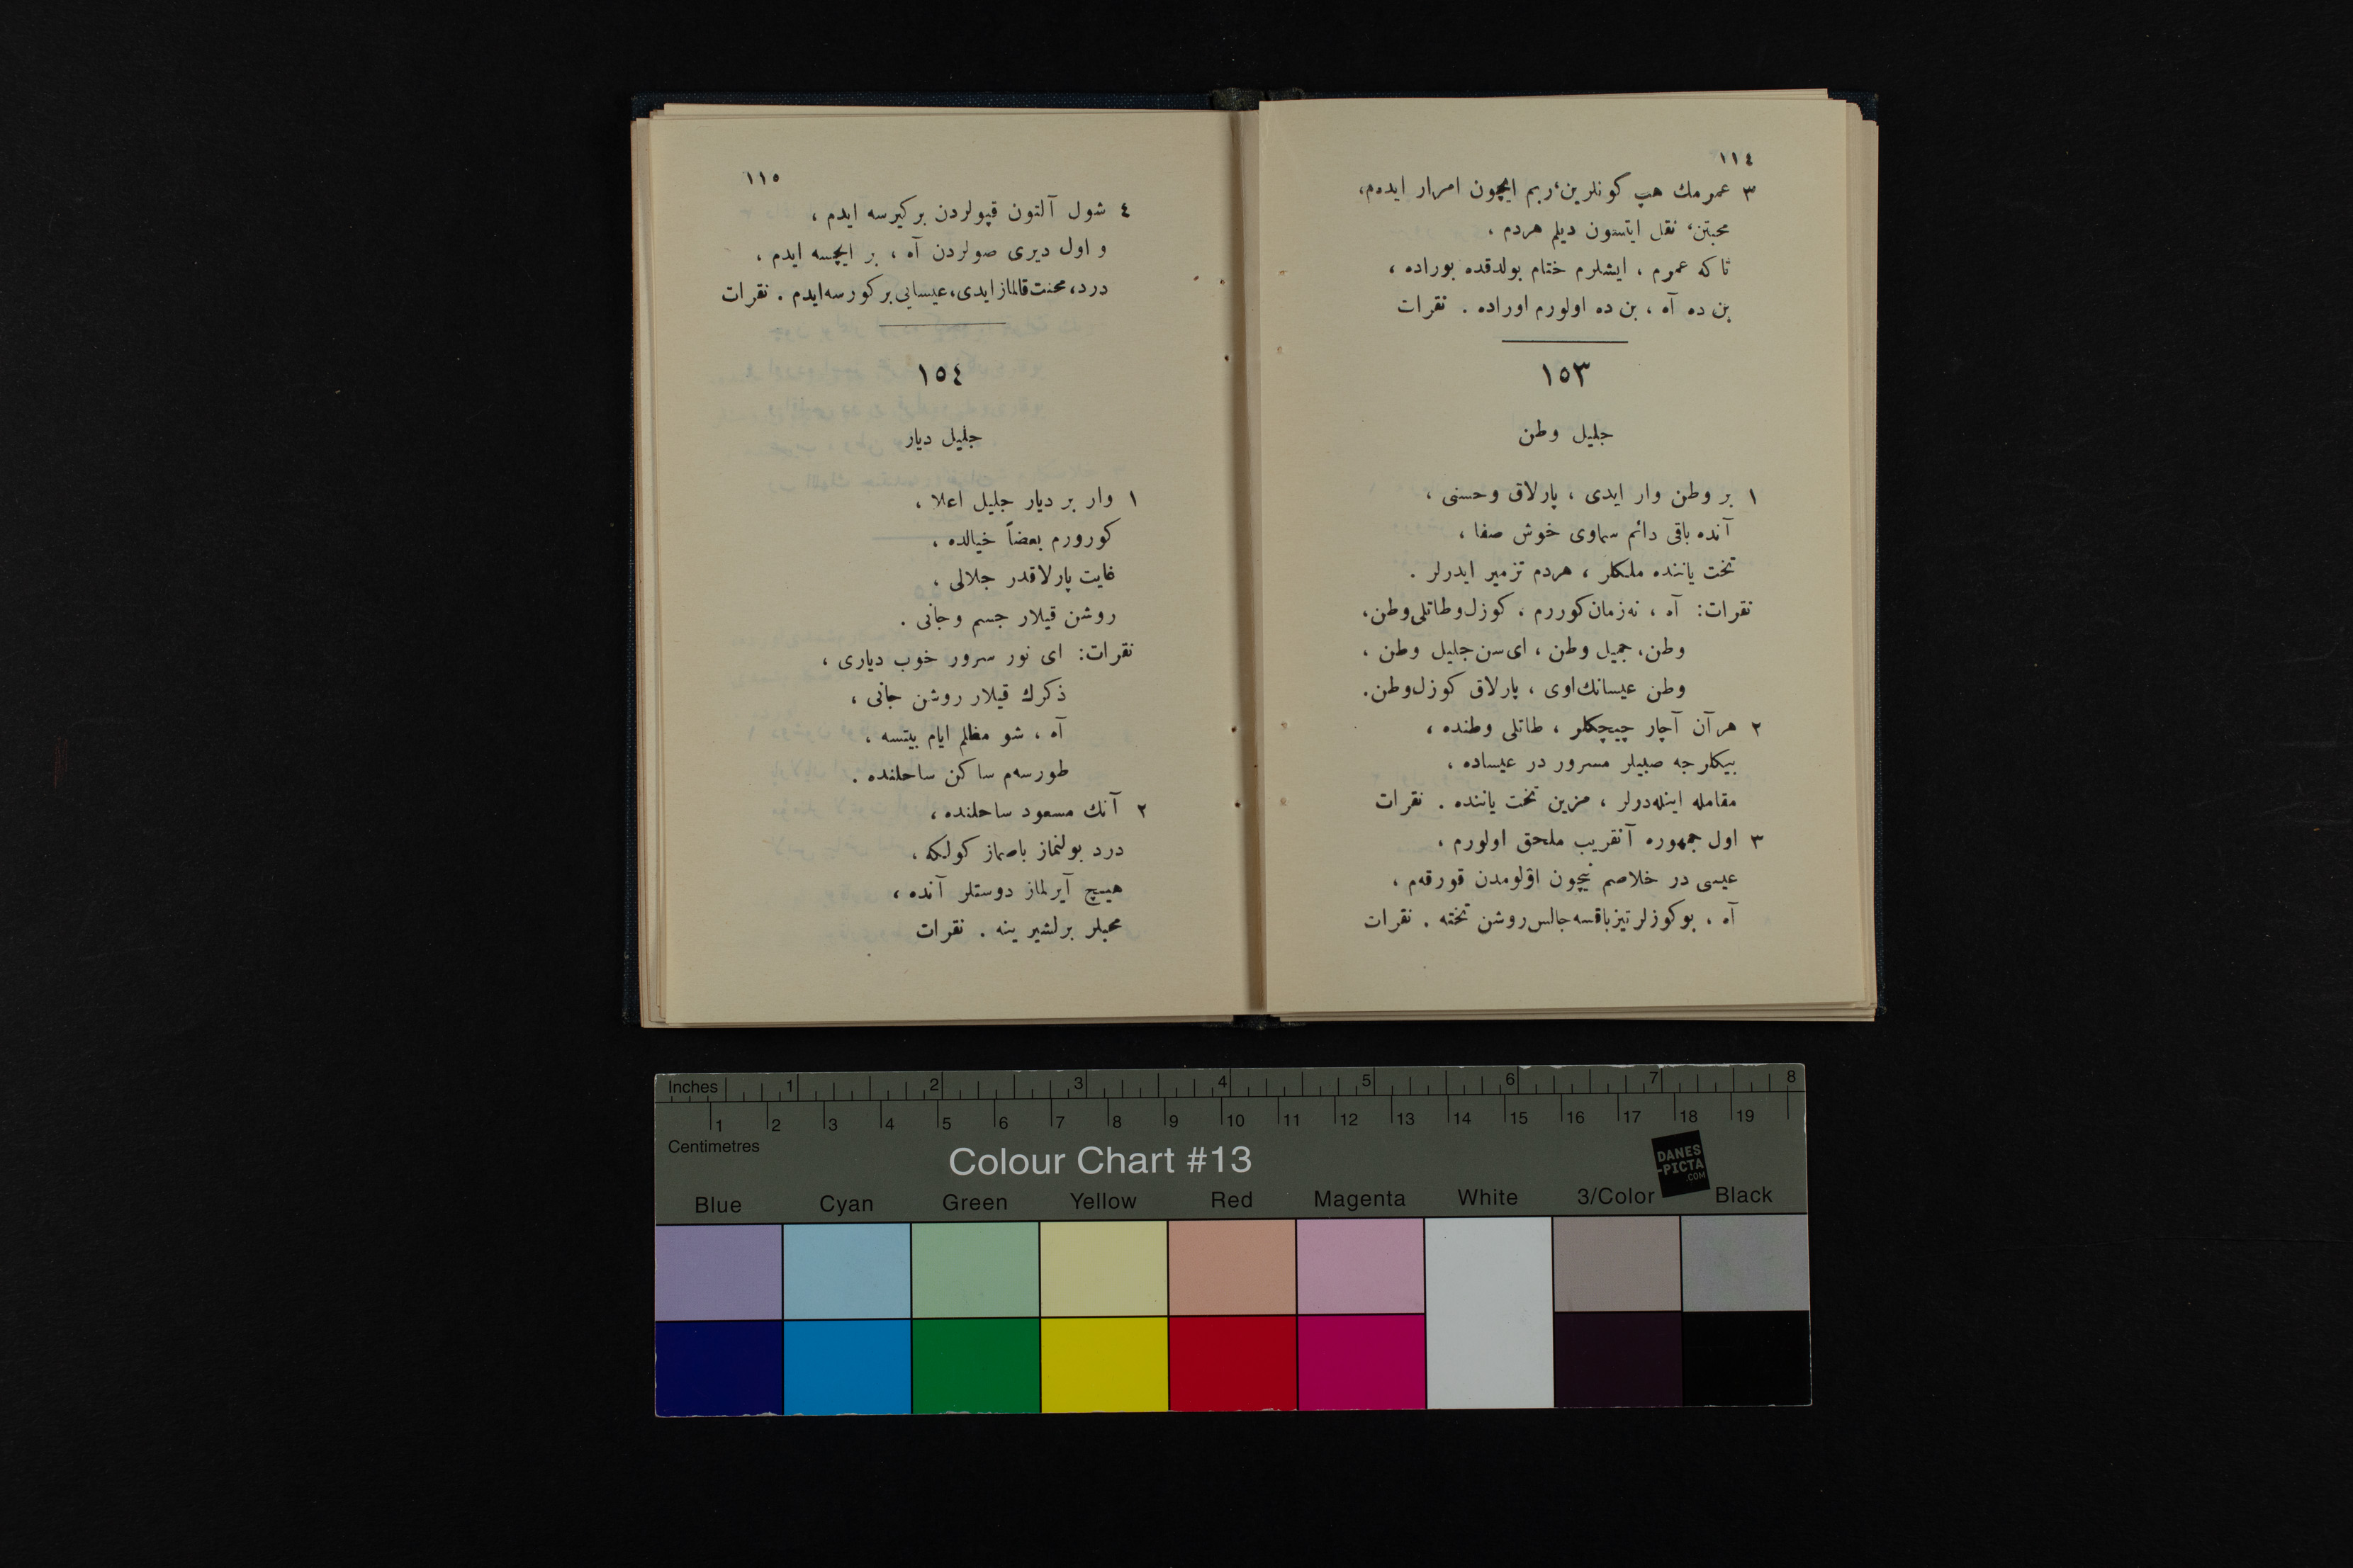 ١١٤
٣ عمرمك هپ كونلرين، ربم ايچون امرار ايده‌م،
محبتن، نقل ايتسون ديلم هردم ،
تا كه عمرم ، ايشلرم ختام بولدقده بوراده ،
بن ده آه ، بن ده اولورم اوراده . نقرات
١٥٣
جليل وطن
١ بر وطن وار ايدى ، پارلاق وحسنى ،
آنده باقى دائم سماوى خوش صفا ،
تخت ياننده ملكلر ، هردم تزمير ايدرلر .
نقرات: آه ، نه‌زمان كوررم . كوزل‌وطاتلى‌وطن،
وطن، جميل وطن ، اى‌سن جليل وطن ،
وطن عيسانك‌اوى ، پارلاق كوزل‌وطن.
٢ هر آن آچار چيچكلر ، طاتلى وطنده ،
بيكلرجه صبيلر مسرور در عيساده ،
مقامله اينله‌درلر ، مزين تخت ياننده . نقرات
٣ اول جمهوره آنقريب ملحق اولورم ،
عيسى در خلاصم نيچون اؤلومدن قورقه‌م ،
آه ، بو كوزلر تيز باقسه جالس روشن تخته . نقرات
١١٥
٤ شول آلتون قپولردن بر كيرسه ايدم ،
و اول ديرى صولردن آه ، بر ايچسه ايدم ،
درد، محنت قالماز ايدى، عيسايى بر كورسه‌ايدم . نقرات
١٥٤
جليل ديار
١ وار بر ديار جليل اعلا ،
كورورم بعضاً خيالده ،
غايت پارلاقدر جلالى ،
روشن قيلار جسم وجانى .
نقرات: اى نور سرور خوب ديارى ،
ذكرك قيلار روشن جانى ،
آه ، شو مظلم ايام بيتسه ،
طورسه‌م ساكن ساحلنده .
٢ آنك مسعود ساحلنده ،
درد بولنماز باصماز كولكه ،
هيچ آيرلماز دوستلر آنده ،
محبلر برلشير ينه . نقرات
Inches 1 2 3 4 5 6 7 8
1 2 3 4 5 6 7 8 9 10 11 12 13 14 15 16 17 18 19
Centimetres
Colour Chart #13
DANES
-PICTA
.COM
Blue Cyan Green Yellow Red Magenta White 3/Color Black